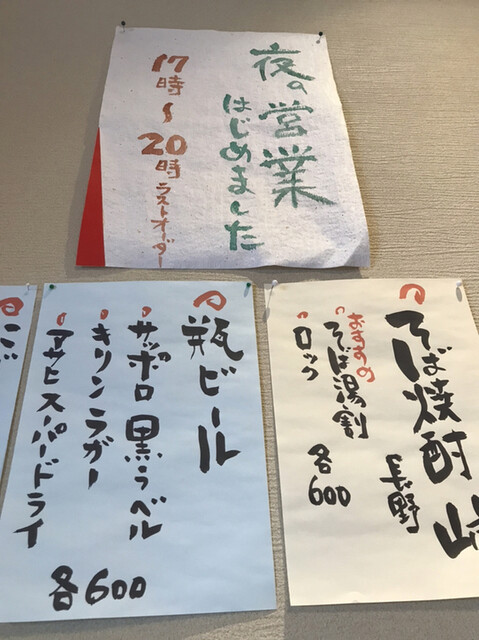 夜の営業
はじめました
17時〜20時ラストオーダー
そば焼酎
長野
おすすめ
そば湯割
ロック
各600
瓶ビール
サッポロ黒ラベル
キリンラガー
アサヒスーパードライ
各600